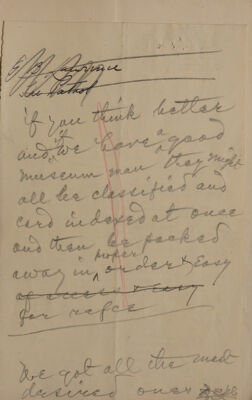 if you think better
and if we have a good
museum man they might
all be classified and
card indexed at once
and then be packed
away in proper order & easy
for refce
We got all the most
desired ones